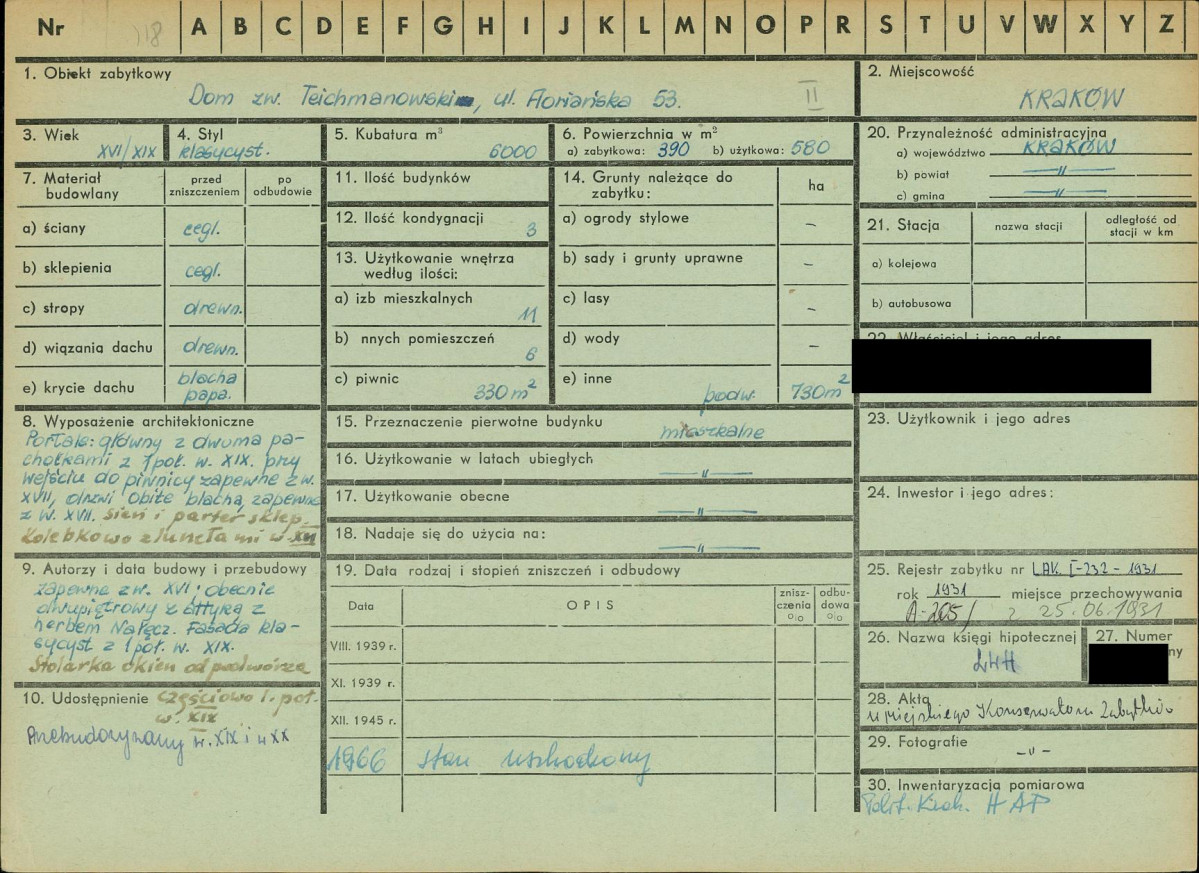 Nr 118 A B C D E F G H I J K L M N O P R S T U V W X Y Z
1. Obiekt zabytkowy
Dom zw. Teichmanowskim, ul. Floriańska 53. II
2. Miejscowość
KRAKÓW
3. Wiek
XVI/XIX
4. Styl
klasycyst.
5. Kubatura m³
6000
6. Powierzchnia w m²
a) zabytkowa: 390 b) użytkowa: 580
7. Materiał budowlany
przed zniszczeniem
po odbudowie
a) ściany cegl.
b) sklepienia cegl.
c) stropy drewn.
d) wiązania dachu drewn.
e) krycie dachu blacha papa.
8. Wyposażenie architektoniczne
Portale: główny z dwuma pa-
chołkami z 1 poł. w. XIX. przy
wejściu do piwnicy zapewne z w.
XVII, drzwi obite blachą, zapewne
z w. XVII. Sień i parter sklep.
kolebkowo z lunetami w. XVII
9. Autorzy i data budowy i przebudowy
zapewne z w. XVI; obecnie
dwupiętrowy z attyką z
herbem Nałęcz. Fasada kla-
sycyst z 1 poł. w. XIX.
Stolarka okien od podwórza
częściowo 1. poł.
w. XIX
10. Udostępnienie
Przebudowywany w. XIX i w XX
11. Ilość budynków
12. Ilość kondygnacji
3
13. Użytkowanie wnętrza
według ilości:
a) izb mieszkalnych
11
b) nnych pomieszczeń
6
c) piwnic
330 m²
14. Grunty należące do
zabytku:
ha
a) ogrody stylowe –
b) sady i grunty uprawne –
c) lasy –
d) wody –
e) inne podw. 730 m²
15. Przeznaczenie pierwotne budynku
mieszkalne
16. Użytkowanie w latach ubiegłych
—"—
17. Użytkowanie obecne
—"—
18. Nadaje się do użycia na:
—"—
19. Data rodzaj i stopień zniszczeń i odbudowy
Data
OPIS
znisz-
czenia
%
odbu-
dowa
%
VIII. 1939 r.
XI. 1939 r.
XII. 1945 r.
1966 stan uszkodzony
20. Przynależność administracyjna
a) województwo KRAKÓW
b) powiat —"—
c) gmina —"—
21. Stacja
nazwa stacji
odległość od
stacji w km
a) kolejowa
b) autobusowa
22. Właściciel i jego adres
23. Użytkownik i jego adres
24. Inwestor i jego adres:
25. Rejestr zabytku nr LAK. I-232-1931
rok 1931 miejsce przechowywania
A-265/ z 25.06.1931
26. Nazwa księgi hipotecznej
27. Numer
ny
28. Akta
u Miejskiego Konserwatora Zabytków
29. Fotografie
–"–
30. Inwentaryzacja pomiarowa
Polit. Krak. HAP